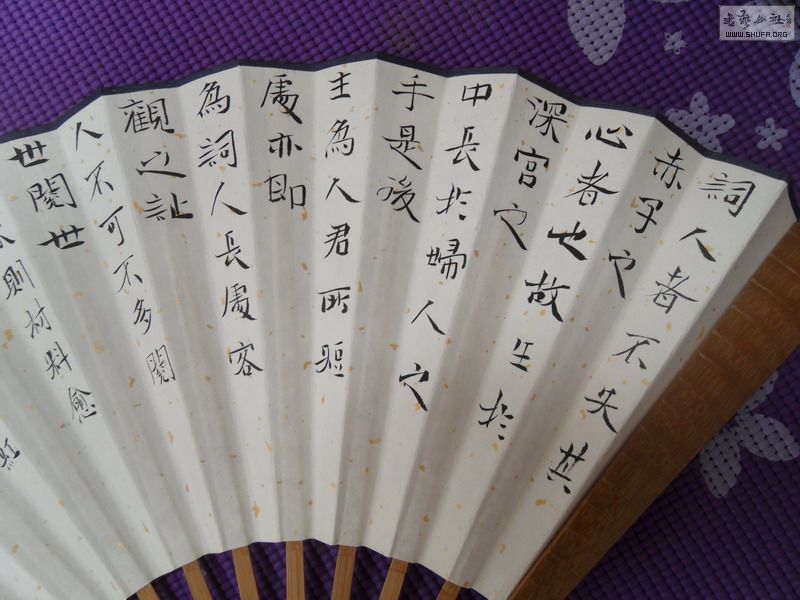 詞人者不失其
赤子之
心者也故生於
深宮之
中長於婦人之
手是後
主為人君所短
處亦即
為詞人長處客
觀之詩
人不可不多閱
世閱世
則材料愈
書藝公社
WWW.SHUFA.ORG